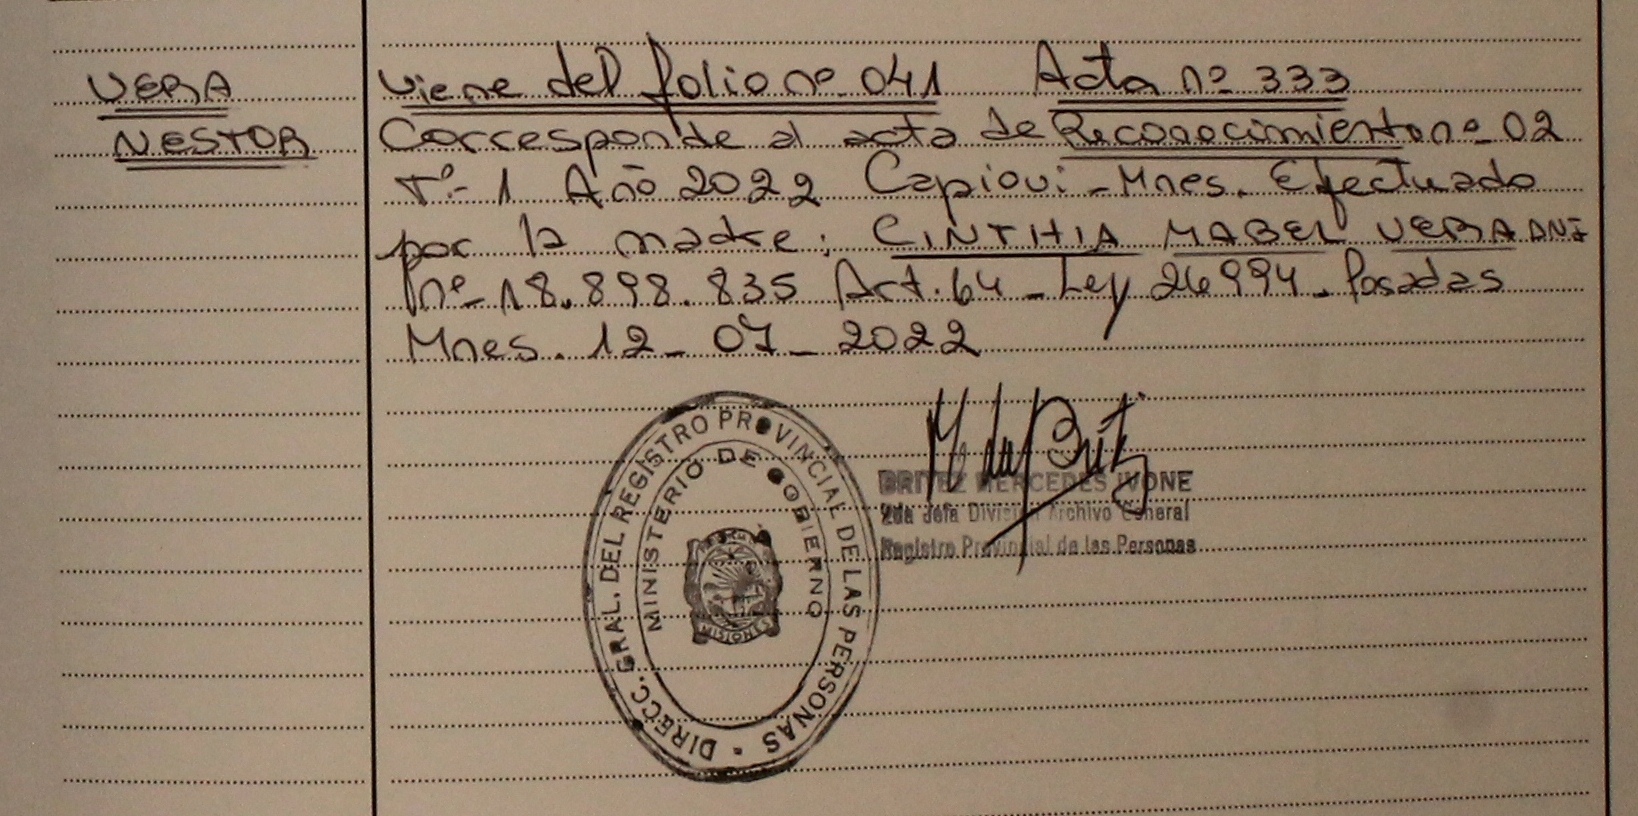 VERA
NESTOR
Viene del folio nº 041 Acta nº 333
Corresponde al acta de Reconocimiento nº 02
Tº- 1 Año 2022 Capiovi - Mnes. Efectuado
por la madre: CINTHIA MABEL VERA DNI
nº 18.898.835 Art. 64 - Ley 26994 - Posadas
Mnes. 12 - 07 - 2022
DIRECC. GRAL. DEL REGISTRO PROVINCIAL DE LAS PERSONAS
MINISTERIO DE GOBIERNO
MISIONES
BRITEZ MERCEDES IVONE
2da Jefa División Archivo General
Registro Provincial de las Personas